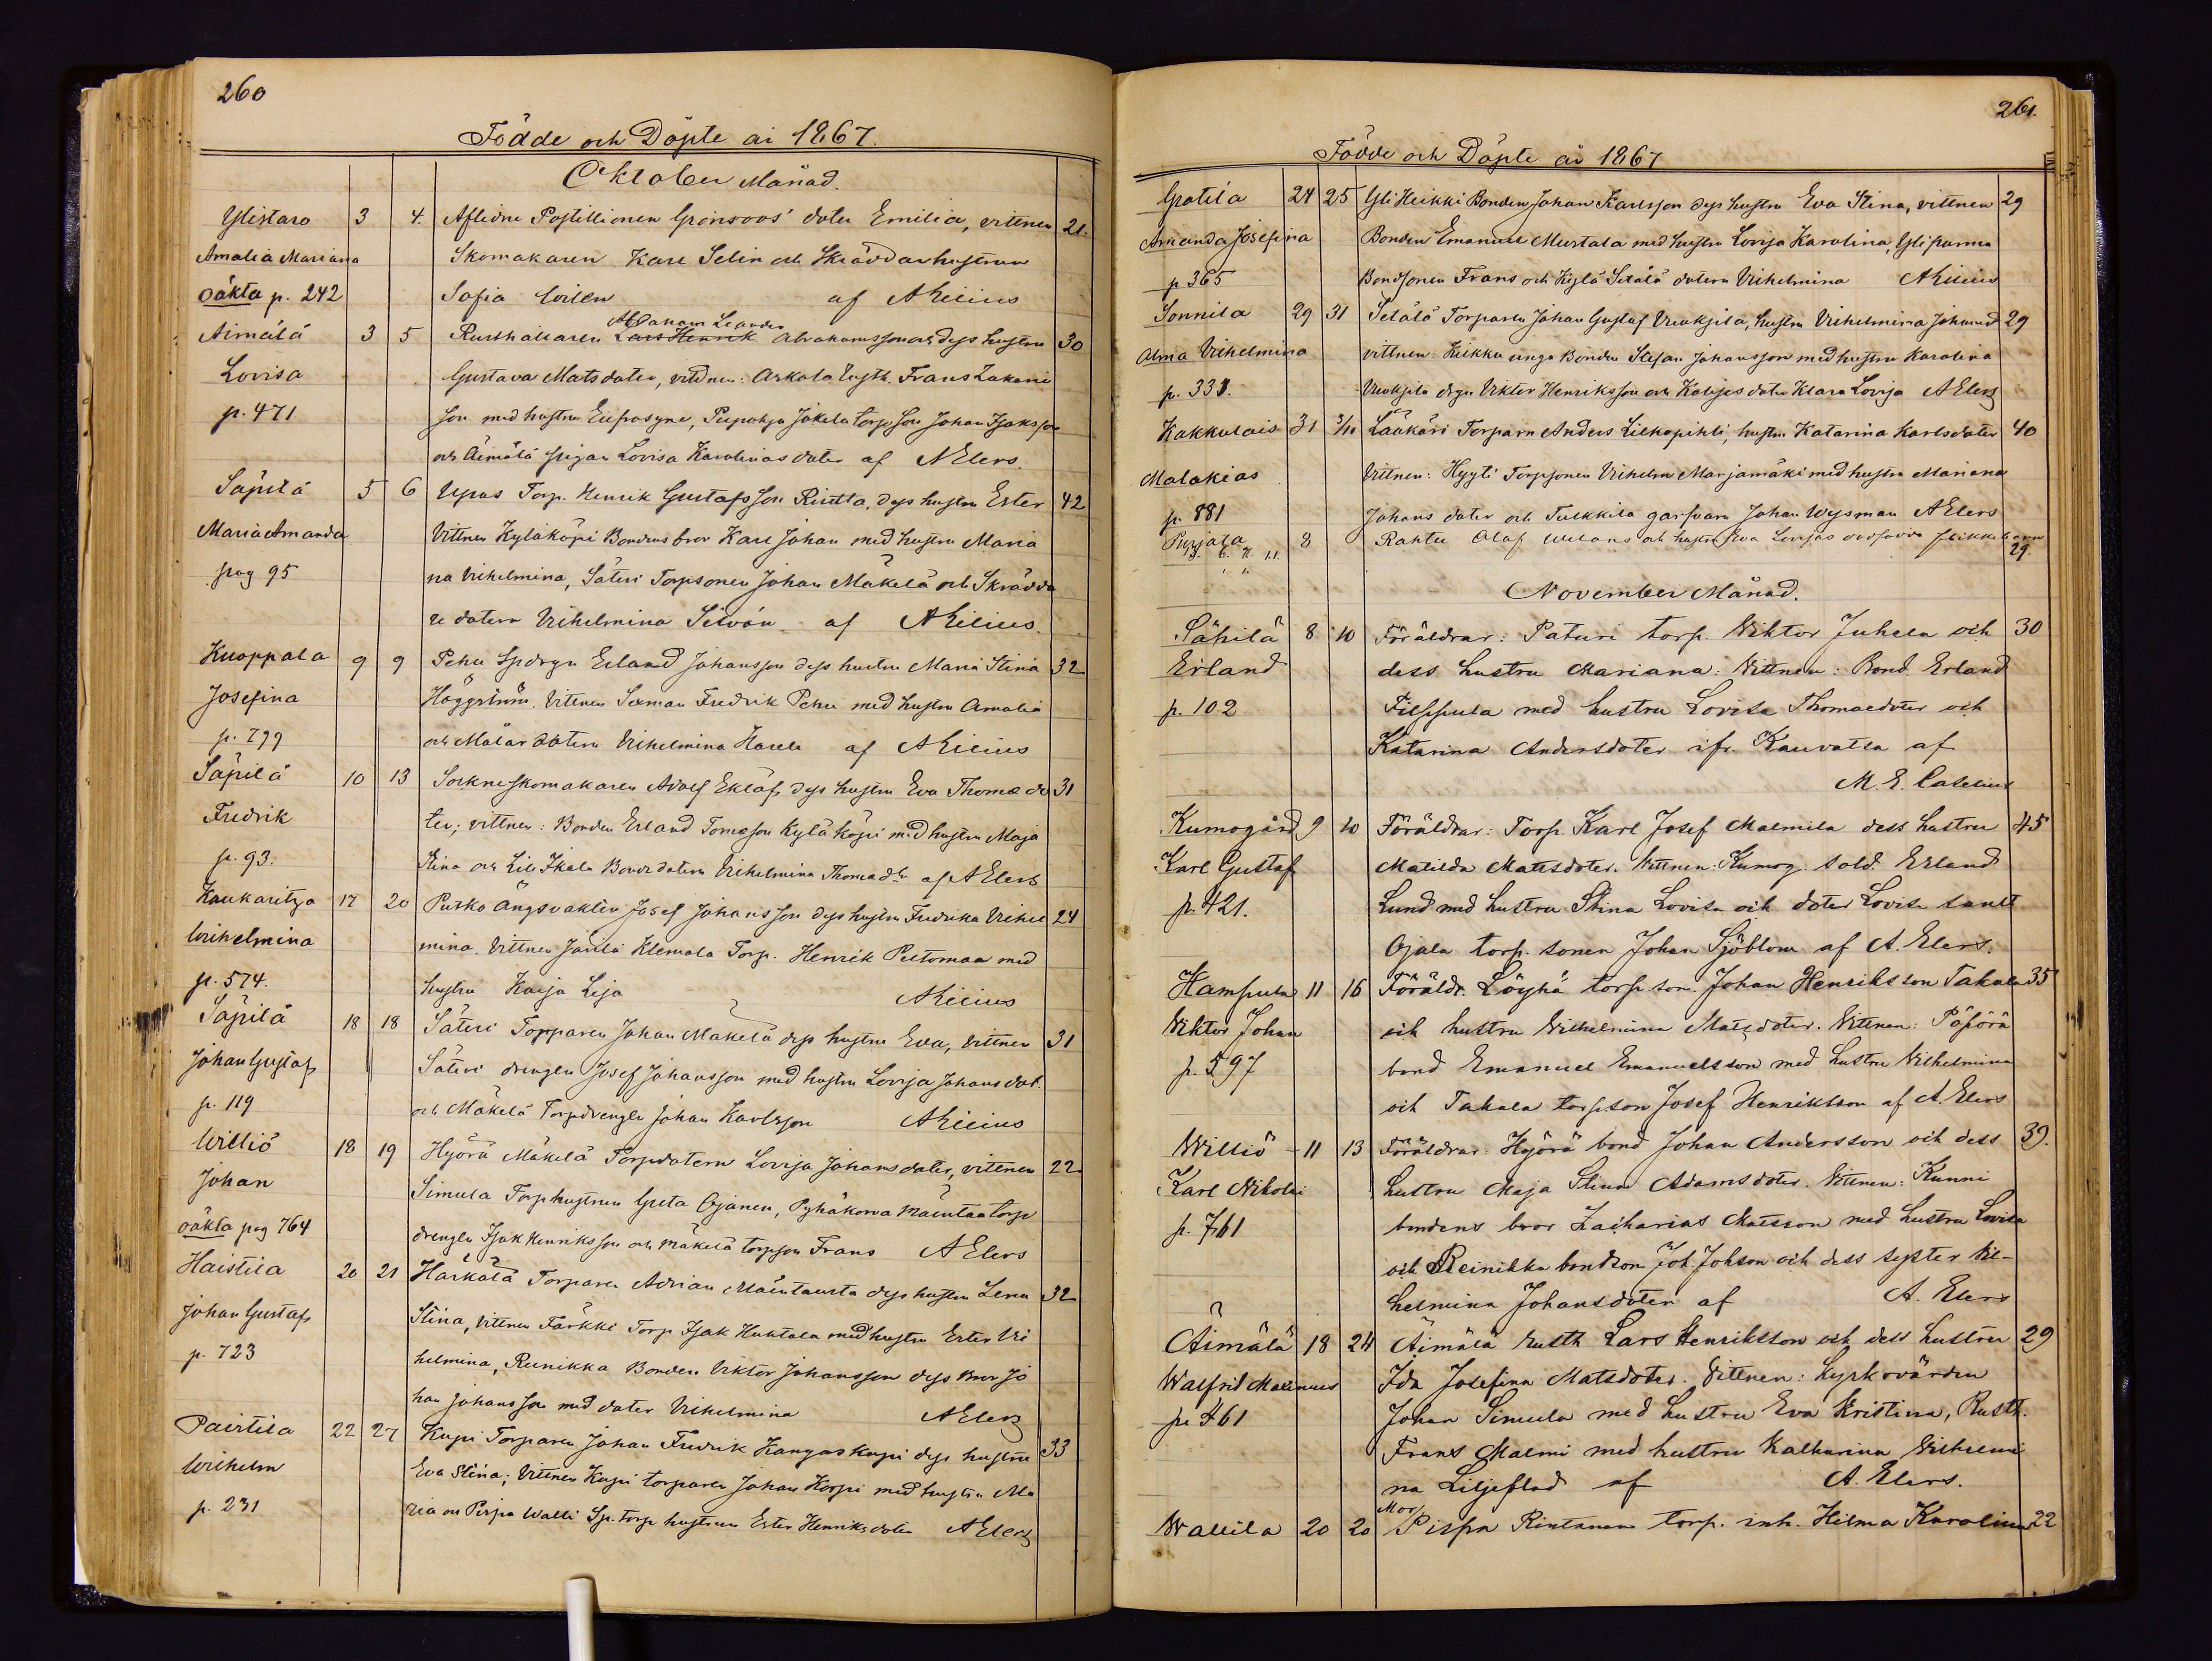 260
Födde och Döpte år 1867.
Oktober Månad.
Ylistaro 3 4. Aflidne Postillionen Grönroos' doter Emilia, vittnen 21.
Amalia Mariana Skomakaren Karl Selin och Skräddarhustrun
oäkta p. 242 Sofia af A Helenius
Abraham Leander
Äimälä 3 5 Rusthållaren Lars Henrik Abrahamsson och dess hustru 30
Lovisa Gustava Matsdoter, vittnen: Arkola Rusth. Frans Zakaris
p. 471 son med hustru Eufrosyne, Peipohja Jakola torp. son Johan Isaksson
och Äimälä pigan Lovisa Karolinas doter af A Elers.
Säpilä 5 6 Upas Torp. Henrik Gustafsson Rintta, dess hustru Ester 42
Maria Amanda Vittnen Kyläköpi Bondens bror Karl Johan med hustru Maria
pag 95 na Vilhelmina, Säteri Torpsonen Johan Mäkelä och Skrädda
re datern Vilhelmina Selvén af
Kuoppala 9 9 Pehu Spdrgn Erland Johansson dess hustru Maria Stina 32
Josefina Häggström. Vittnen Sexman Fredrik Pehu med hustru Amalia
p. 799 och Målar datern Vilhelmina af
Säpilä 10 13 Sockneskomakaren Adolf Eklöf, dess hustru Eva Thomæ do 31
Fredrik ter; vittnen: Bonden Erland Tomasson Kyläköpi med hustru Maja
p. 93. Stina och Lill Ikala Bondedatern Vilhelmina Thomædr af A Elers
Kaukaritsa 17 20 Putko Ängsvakten Josef Johansson dess hustru Fredrika Vilhel 24
Wilhelmina mina. Vittnen Klemola Torp. Henrik Peltomaa med
p. 574. hustru Kaisa Lisa
Säpilä 18 18 Säteri Torparen Johan Mäkelä dess hustru Eva, Vittnen 31
Johan Gustaf Säteri drengen Josef Johansson med hustru Lovisa Johansdot.
p. 119 och Mäkelä Torpdrengen Johan Karlsson
Williö 18 19 Hyörä Mäkelä Torpdatern Lovisa Johansdoter, vittnen 22
Johan Simula Torphustrun Greta Ojanen, Pyhäkorva Mäentaa torp
oäkta pag 764 drengen Isak Henriksson och Mäkelä torpson Frans A Elers
Haistila 20 21 Härkälä Torparen Adrian Mäentausta dess hustru Lena 32
Johan Gustaf Stina, Vittnen Färkki Torp Isak Huhtala med hustru Ester Vil
p. 723 helmina, Reinikka Bonden Viktor Johansson dess bror Jo
han Johansson med doter Vilhelmina A Elers
Pairtila 22 27 Kupi Torparen Johan Fredrik Kangaskupi dess hustru 33
Wilhelm Eva Stina; Vittnen Kupi torparen Johan Korpi med hustru Ma
p. 231 ria och Pirpa Walli Sp. torp hustrun Ester Henriksdoter A Elers
261.
Födde och Döpte år 1867
24 25 Yli Heikki Bonden Johan Karlsson dess hustru Eva Stina, vittnen 29
Amanda Josefina Bonden Emanuel Murtala med hustru Lovisa Karolina,
p 365 Bondsonen Frans och Kylä Setälä datern Vilhelmina
Sonnila 29 31 Setälä Torparen Johan Gustaf Uuksila, hustru Vilhelmina Johansd 29
Alma Vilhelmina vittnen: Bonden Stefan Johansson med hustru Karolina
p. 331. Uuksila drgn Viktor Henriksson och doter Klara Lovisa A Elers
Kakkulais 31 3/11 Lääkäri Torparn Anders Lilhapihti, hustru Katarina Karlsdoter 40
Malakias Vittnen: Hyyti Torpsonen Vilhelm Marjamäki med hustru Mariana
p. 881 Johans doter och Tulkkila garfvarn Johan Wysman A Elers
Pirjala 8 Rantu Olaf och hustru Eva Lovisas flickebarn
29.
November Månad.
Säpilä 8 10 Föräldrar: Paturi torp. Wiktor Juhela och 30
Erland dess hustru Mariana. Vittnen: Bond. Erland
p. 102 Filppula med hustru Lovisa Thomædoter och
Katarina Andersdoter ifr. Kauvatsa af
M. E. Caselius
Kumogård 9 10 Föräldrar: Torp. Karl Josef Malmila dess hustru 45
Karl Gustaf Matilda Mattsdoter. Vittnen: Kumog. sold. Erland
p. 421. Lund med hustru Stina Lovisa och doter Lovisa samt
Ojala torp. sonen Johan Sjöblom af A. Elers.
Hampula 11 16 Föräldr. Löyhä torp son. Johan Henriksson Takala 35
Wiktor Johan och hustru Wilhelmina Matsdoter. Vittnen: Päförä
p. 597 bond Emanuel Emanuelsson med hustru Wilhelmina
och Takala torpson Josef Henriksson af A. Elers
Williö 11 13 Föräldrar: Hyörä bond Johan Andersson och dess 39.
Karl Nikolai hustru Maja Stina Adamsdoter. Vittnen: Kunni
p. 761 bondens bror Zacharias Matsson med hustru Lovisa
och Reinikka bondson Joh. Johsson och dess syster Vil-
helmina Johansdoter af A. Elers
Äimälä 18 24 Äimälä rusth Lars Henriksson och dess hustru 29
Walfrid Malinus Ida Josefina Matsdoter. Vittnen: Kyrkovärden
p. 461 Johan Simula med hustru Eva Kristina, Rusth.
Frans Malmi med hustru Katharina Wilhelmi
na Liljeblad af A. Elers.
Wallila 20 20 Mor Pispa Rintanen torp. inh. Hilma Karolina 22